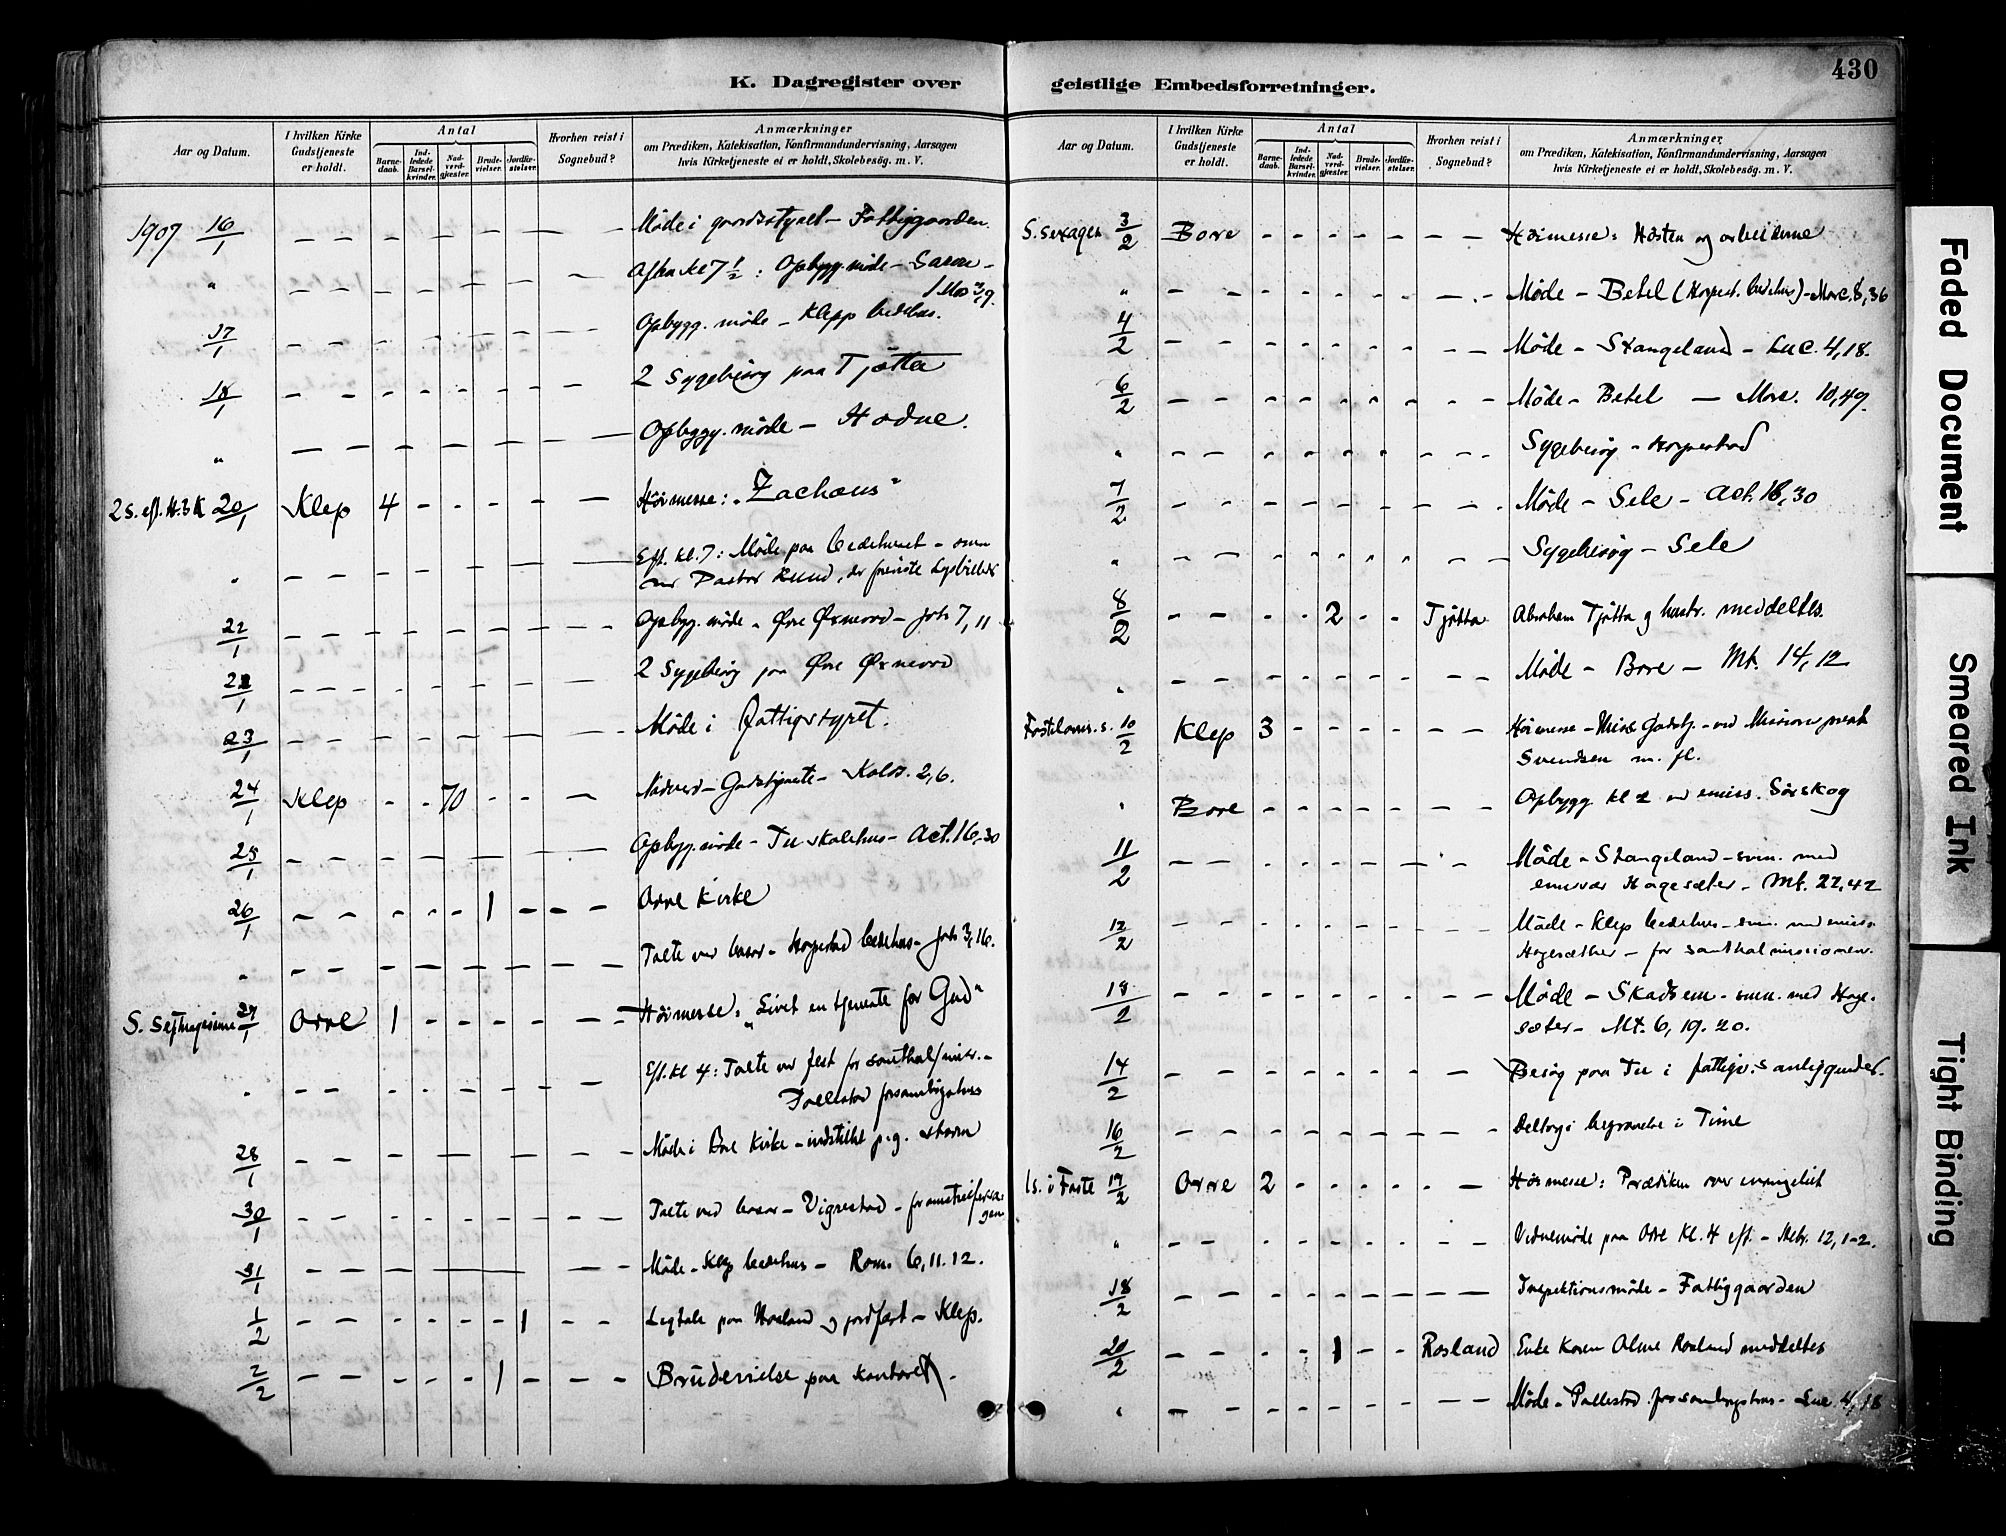 430
K. Dagregister over geistlige Embedsforretninger.
Aar og Datum.
I hvilken Kirke Gudstjeneste er holdt.
Antal
Barnedaab.
Indledede Barselkvinder.
Nadverdgjæster.
Brudevielser.
Jordfæstelser.
Hvorhen reist i Sognebud?
Anmærkninger
om Prædiken, Katekisation, Konfirmandundervisning, Aarsagen
hvis Kirketjeneste ei er holdt, Skolebesög. m. V.
1907 16/1 Møde i – Fattiggaarden.
" Aften kl 7 1/2: Opbygg. møde – Saron –
1 Mos 3,9.
17/1 Opbygg. møde – Klepp bedehus.
18/1 2 Sygebesøg paa Tjøtta
" Opbygg. møde – Hodne.
2 S. eft. H.3K 20/1 Klep 4 Høimesse: "Zachæus"
" Eft. kl. 7: Møde paa bedehuset – sam
Pastor Lund, der foreviste Lysbilleder
22/1 Opbyg. møde – Øvre Øxnevad – Joh 7,11
22/1 2 Sygebesøg paa Øvre Øxnevad
23/1 Møde i fattigstyret.
24/1 Klep 70 Nadverd-Gudstjeneste – Kolos. 2,6.
25/1 Opbyg. møde – Tu skolehus – Act. 16,30
26/1 1 Orre Kirke
" Talte ved basar – Horpestad bedehus – Joh 3,16.
S. Septuagesima 27/1 Orre 1 Høimesse: "Livet en tjeneste for Gud"
" Eft. kl 4: Talte ved fest for santhalmis. –
Pollestad forsamlingshus
28/1 Møde i Bore Kirke – indstillet p. g. storm
30/1 Talte ved basar – Vigrestad –
31/1 Møde – Klep bedehus – Rom. 6,11.12.
1/2 1 Ligtale paa og jordfæst – Klep.
2/2 1 Brudevielse paa kontoret.
Aar og Datum.
I hvilken Kirke Gudstjeneste er holdt.
Antal
Barnedaab.
Indledede Barselkvinder.
Nadverdgjæster.
Brudevielser.
Jordfæstelser.
Hvorhen reist i Sognebud?
Anmærkninger,
om Prædiken, Katekisation, Konfirmandundervisning, Aarsagen
hvis Kirketjeneste ei er holdt, Skolebesög. m. V.
S. Sexages 3/2 Bore Høimesse: Høsten og arbeiderne
" Møde – Betel (Horpest. bedehus) – Marc. 8,36
4/2 Møde – Stangeland – Luc. 4,18.
6/2 Møde – Betel – Marc. 10,49.
" Sygebesøg – Horpestad
7/2 Møde – Sele – Act. 16,30
" Sygebesøg – Sele
8/2 2 Tjøtta Abraham Tjøtta og hustr. meddeltes.
" Møde – Bore – Mt. 14,12
Fastelavns. s. 10/2 Klep 3 Høimesse – Miss Gudstj. – ved Missionsprest
Svendsen m. fl.
" Bore Opbygg kl 2 ved emiss. Sørskog
11/2 Møde – Stangeland – sam. med
emissær Hagesæter – Mt. 22,42
12/2 Møde – Klep bedehus – sam. med emiss.
Hagesæther – for santhalmissionen.
13/2 Møde – Skadsem – sam. med Hage-
sæter – Mt. 6,19.20.
14/2 Besøg paa Tu i fattigv.s anliggender.
16/2 Deltog i begravelse i Time
1 s. i Faste 17/2 Orre 2 Høimesse: Prædiken over evangeliet
" Vidnemøde paa Orre kl. 4 eft. – Hebr. 12,1-2.
18/2 Inspektionsmøde – Fattiggaarden
20/2 1 Rosland Enke Karen Olene Rosland meddeltes
" Møde – Pollestad forsamlingshus – Luc 4,18
Faded Document
Smeared Ink
Tight Binding